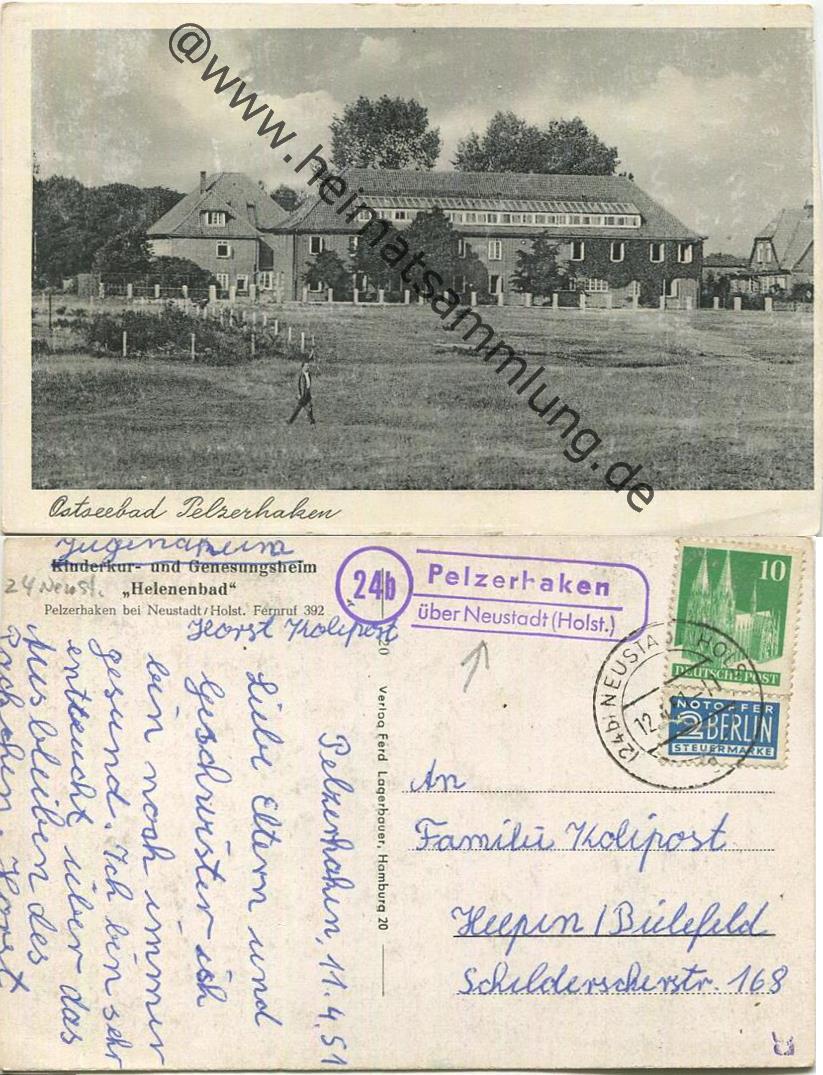 @www.heimatsammlung.de
Ostseebad Pelzerhaken
Jugendheim
Kinderkur- und Genesungsheim
24 Neust.
„Helenenbad“
Pelzerhaken bei Neustadt/Holst. Fernruf 392
Horst Kolipost
24b
Pelzerhaken
über Neustadt (Holst.)
10
DEUTSCHE POST
NOTOPFER
2 BERLIN
STEUERMARKE
(24b) NEUSTADT (HOLST)
12.4.51
Pelzerhaken, 11.4.51
Liebe Eltern und
Geschwister ich
bin noch immer
gesund. Ich bin sehr
entteucht über das
Ausbleiben des
Horst
Verlag Ferd Lagerbauer, Hamburg 20
An
Familie Kolipost
Heepen/Bielefeld
Schelderscherstr. 168